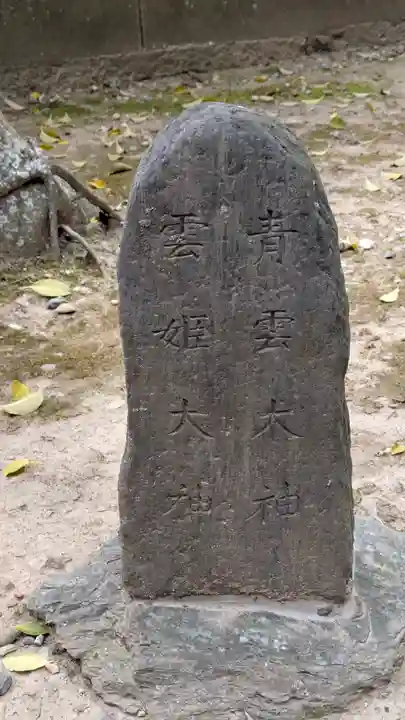 青雲大神
雲姫大神